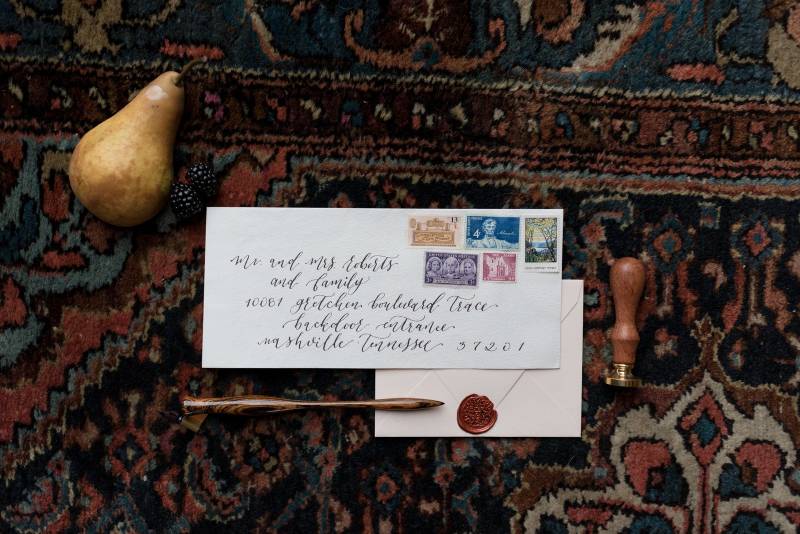 13
4¢
Mr. and mrs. roberts
and family
10061 gretchen boulevard Trace
backdoor entrance
nashville Tennessee 37201